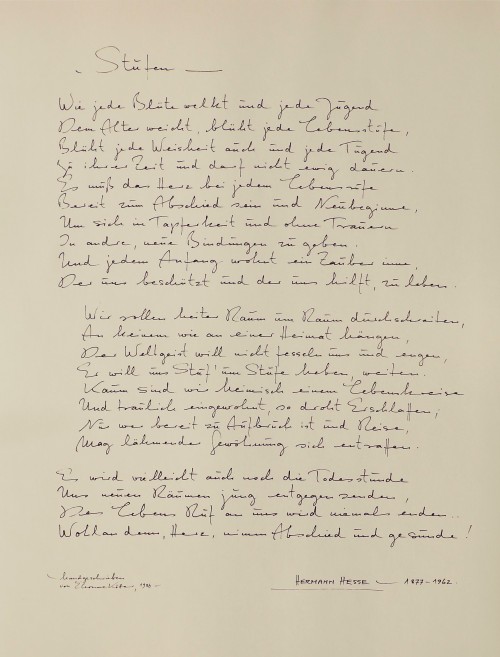 Stufen
Wie jede Blüte welkt und jede Jugend
Dem Alter weicht, blüht jede Lebensstufe,
Blüht jede Weisheit auch und jede Tugend
Zu ihrer Zeit und darf nicht ewig dauern.
Es muß das Herz bei jedem Lebensrufe
Bereit zum Abschied sein und Neubeginne,
Um sich in Tapferkeit und ohne Trauern
In andre, neue Bindungen zu geben.
Und jedem Anfang wohnt ein Zauber inne,
Der uns beschützt und der uns hilft, zu leben.
Wir sollen heiter Raum um Raum durchschreiten,
An keinem wie an einer Heimat hängen,
Der Weltgeist will nicht fesseln uns und engen,
Er will uns Stuf' um Stufe heben, weiten.
Kaum sind wir heimisch einem Lebenskreise
Und traulich eingewohnt, so droht Erschlaffen,
Nur wer bereit zu Aufbruch ist und Reise,
Mag lähmender Gewöhnung sich entraffen.
Es wird vielleicht auch noch die Todesstunde
Uns neuen Räumen jung entgegen senden,
Des Lebens Ruf an uns wird niemals enden..
Wohlan denn, Herz, nimm Abschied und gesunde!
handgeschrieben
von
HERMANN HESSE 1877-1962.